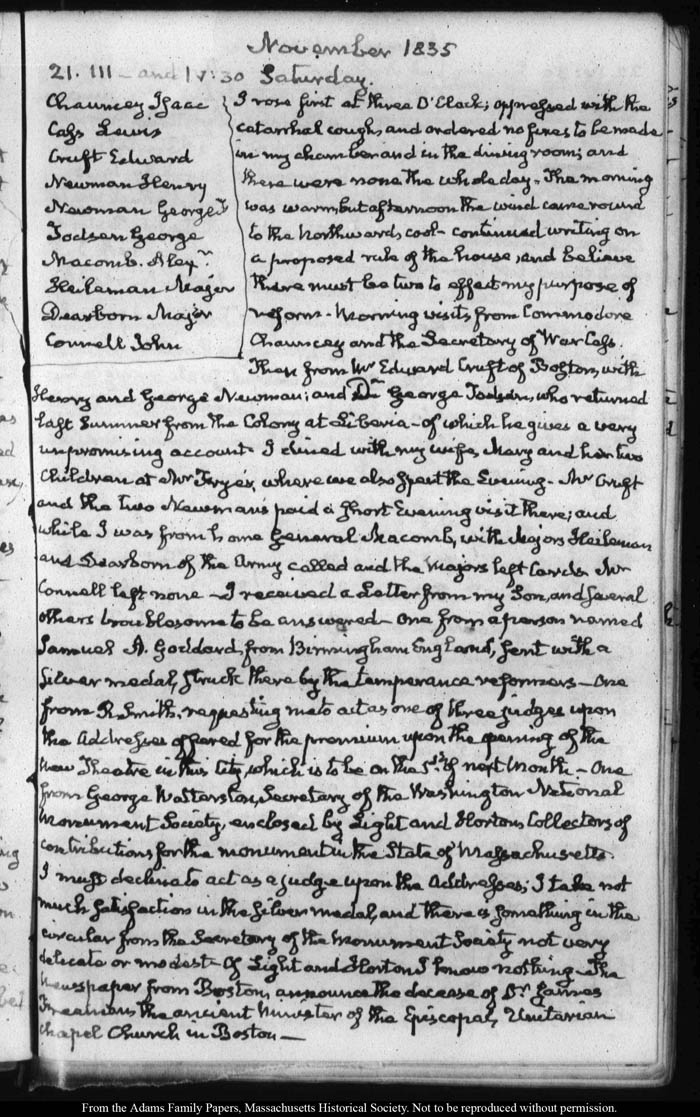 November 1835
21. III - and IV:30 Saturday.
Chauncey Isaac
Cass Lewis
Cruft Edward
Newman Henry
Newman George
Todsen George
Macomb. Alexr.
Heileman Major
Dearborn Major
Connell John
I rose first at three O'Clock; oppressed with the
catarrhal cough, and ordered no fires to be made
in my chamber and in the dining room; and
there were none the whole day - The morning
was warm, but afternoon the wind came round
to the Northward, cool - continued writing on
a proposed rule of the house, and believe
there must be two to effect my purpose of
reform - Morning visits from Commodore
Chauncey and the Secretary of War Cass.
Then from Mr Edward Cruft of Boston, with
Henry and George Newman; and Dr George Todsen, who returned
last Summer from the Colony at Liberia - of which he gives a very
unpromising account. I dined with my wife, Mary and her two
Children at Mr Frye's, where we also spent the Evening - Mr Cruft
and the two Newmans paid a short Evening visit there; and
while I was from home General Macomb, with Majors Heileman
and Dearborn of the Army called and the Majors left Cards. Mr
Connell left none - I received a Letter from my Son, and several
others troublesome to be answered - One from a person named
Samuel A. Goddard, from Birmingham England, sent with a
silver medal, struck there by the temperance reformers - One
from R. Smith, requesting me to act as one of three judges upon
the Addresses offered for the premium upon the opening of the
New Theatre in this City, which is to be on the of next Month - One
from George Watterston, Secretary of the Washington National
Monument Society, enclosed by Light and Horton, Collectors of
contributions for the monument in the State of Massachusetts.
I must decline to act as a judge upon the Addresses; I take not
much satisfaction in the silver medal, and there is something in the
circular from the Secretary of the Monument Society not very
delicate or modest - Of Light and Horton I know nothing - The
Newspaper from Boston, announce the decease of Dr James
Freeman, the ancient Minister of the Episcopal, Unitarian
Chapel Church in Boston -
From the Adams Family Papers, Massachusetts Historical Society. Not to be reproduced without permission.